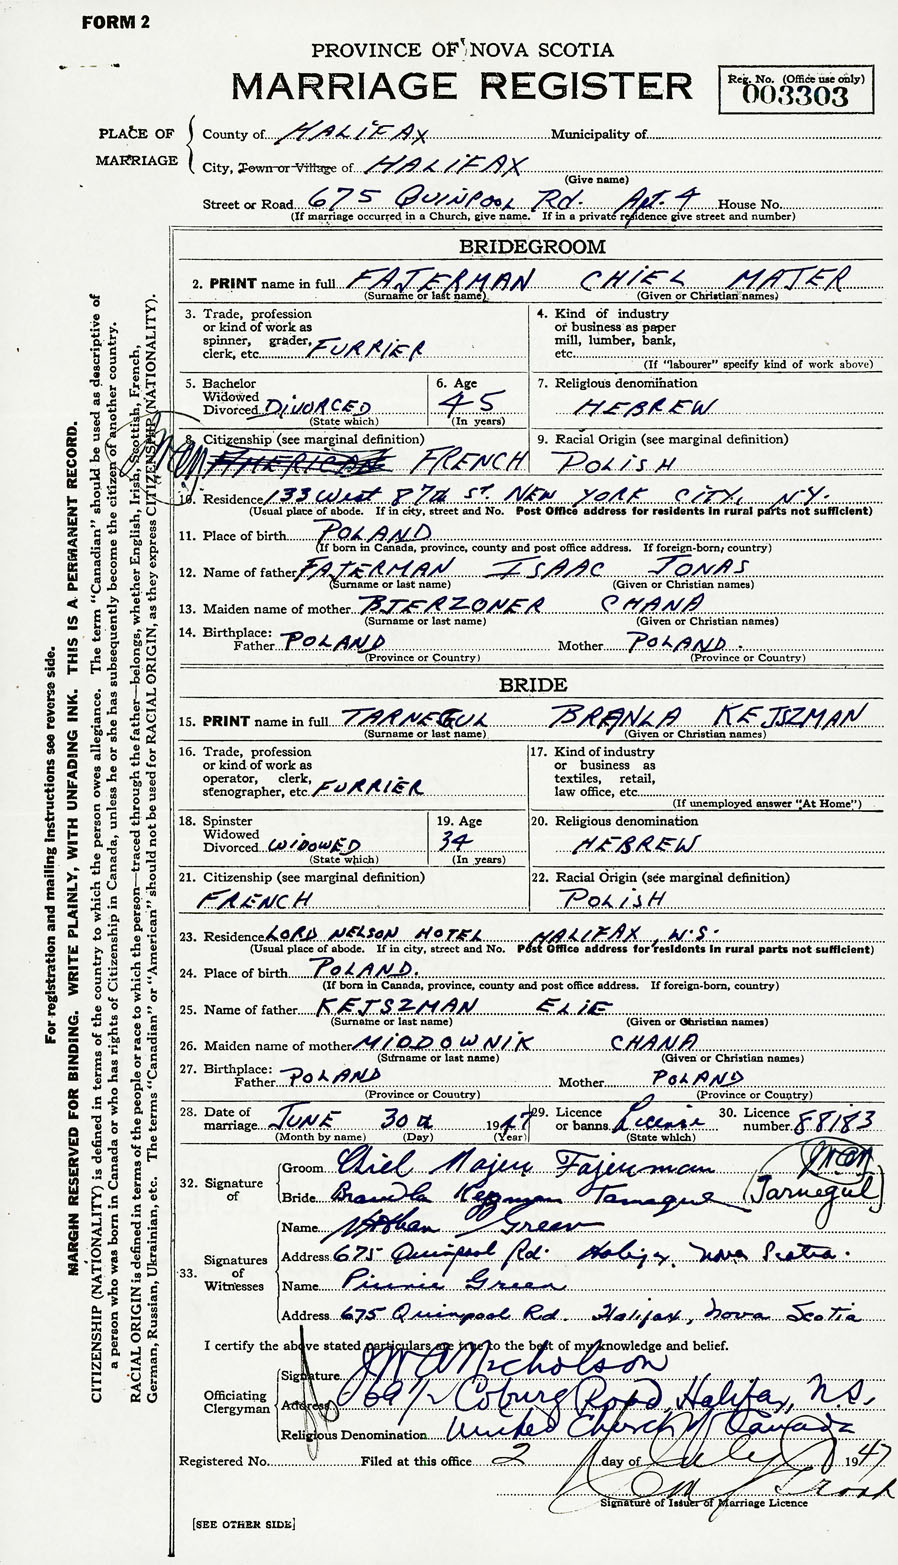 FORM 2
PROVINCE OF NOVA SCOTIA
MARRIAGE REGISTER
Reg. No. (Office use only)
003303
PLACE OF MARRIAGE
County of HALIFAX Municipality of
City, Town or Village of HALIFAX
(Give name)
Street or Road 675 QUINPOOL Rd. Apt. 4 House No.
(If marriage occurred in a Church, give name. If in a private residence give street and number)
BRIDEGROOM
2. PRINT name in full FAJERMAN CHIEL MAJER
(Surname or last name) (Given or Christian names)
3. Trade, profession or kind of work as spinner, grader, clerk, etc. FURRIER
4. Kind of industry or business as paper mill, lumber, bank, etc.
(If "labourer" specify kind of work above)
5. Bachelor Widowed Divorced DIVORCED
(State which)
6. Age 45
(In years)
7. Religious denomination
HEBREW
8. Citizenship (see marginal definition)
AMERICAN FRENCH
9. Racial Origin (see marginal definition)
POLISH
10. Residence 133 West 87th ST. NEW YORK CITY, NY.
(Usual place of abode. If in city, street and No. Post Office address for residents in rural parts not sufficient)
11. Place of birth POLAND
(If born in Canada, province, county and post office address. If foreign-born, country)
12. Name of father FAJERMAN ISAAC JONAS
(Surname or last name) (Given or Christian names)
13. Maiden name of mother BJERZONER CHANA
(Surname or last name) (Given or Christian names)
14. Birthplace:
Father POLAND Mother POLAND.
(Province or Country) (Province or Country)
BRIDE
15. PRINT name in full TARNEGUL BRANLA KEJSZMAN
(Surname or last name) (Given or Christian names)
16. Trade, profession or kind of work as operator, clerk, stenographer, etc. FURRIER
17. Kind of industry or business as textiles, retail, law office, etc.
(If unemployed answer "At Home")
18. Spinster Widowed Divorced WIDOWED
(State which)
19. Age 34
(In years)
20. Religious denomination
HEBREW
21. Citizenship (see marginal definition)
FRENCH
22. Racial Origin (see marginal definition)
POLISH
23. Residence LORD NELSON HOTEL HALIFAX, N.S.
(Usual place of abode. If in city, street and No. Post Office address for residents in rural parts not sufficient)
24. Place of birth POLAND.
(If born in Canada, province, county and post office address. If foreign-born, country)
25. Name of father KEJSZMAN ELIE
(Surname or last name) (Given or Christian names)
26. Maiden name of mother MIODOWNIK CHANA
(Surname or last name) (Given or Christian names)
27. Birthplace:
Father POLAND Mother POLAND
(Province or Country) (Province or Country)
28. Date of marriage JUNE 30th 1947
(Month by name) (Day) (Year)
29. Licence or banns License
(State which)
30. Licence number 88183
32. Signature of
Groom Chiel Majer Fajerman
Bride Brandla Kejzman Tarnegul (Tarnegul)
33. Signatures of Witnesses
Name Nathan Green
Address 675 Quinpool Rd. Halifax, Nova Scotia.
Name Pinnie Green
Address 675 Quinpool Rd. Halifax, Nova Scotia
I certify the above stated particulars are true to the best of my knowledge and belief.
Officiating Clergyman
Signature J W A Nicholson
Address 69 1/2 Coburg Road, Halifax, N.S.
Religious Denomination United Church of Canada
Registered No. Filed at this office 2 day of July 1947
Signature of Issuer of Marriage Licence
[SEE OTHER SIDE]
For registration and mailing instructions see reverse side.
MARGIN RESERVED FOR BINDING. WRITE PLAINLY, WITH UNFADING INK. THIS IS A PERMANENT RECORD.
CITIZENSHIP (NATIONALITY) is defined in terms of the country to which the person owes allegiance. The term "Canadian" should be used as descriptive of
a person who was born in Canada or who has rights of Citizenship in Canada, unless he or she has subsequently become the citizen of another country.
RACIAL ORIGIN is defined in terms of the people or race to which the person—traced through the father—belongs, whether English, Irish, Scottish, French,
German, Russian, Ukrainian, etc. The terms "Canadian" or "American" should not be used for RACIAL ORIGIN, as they express CITIZENSHIP (NATIONALITY).